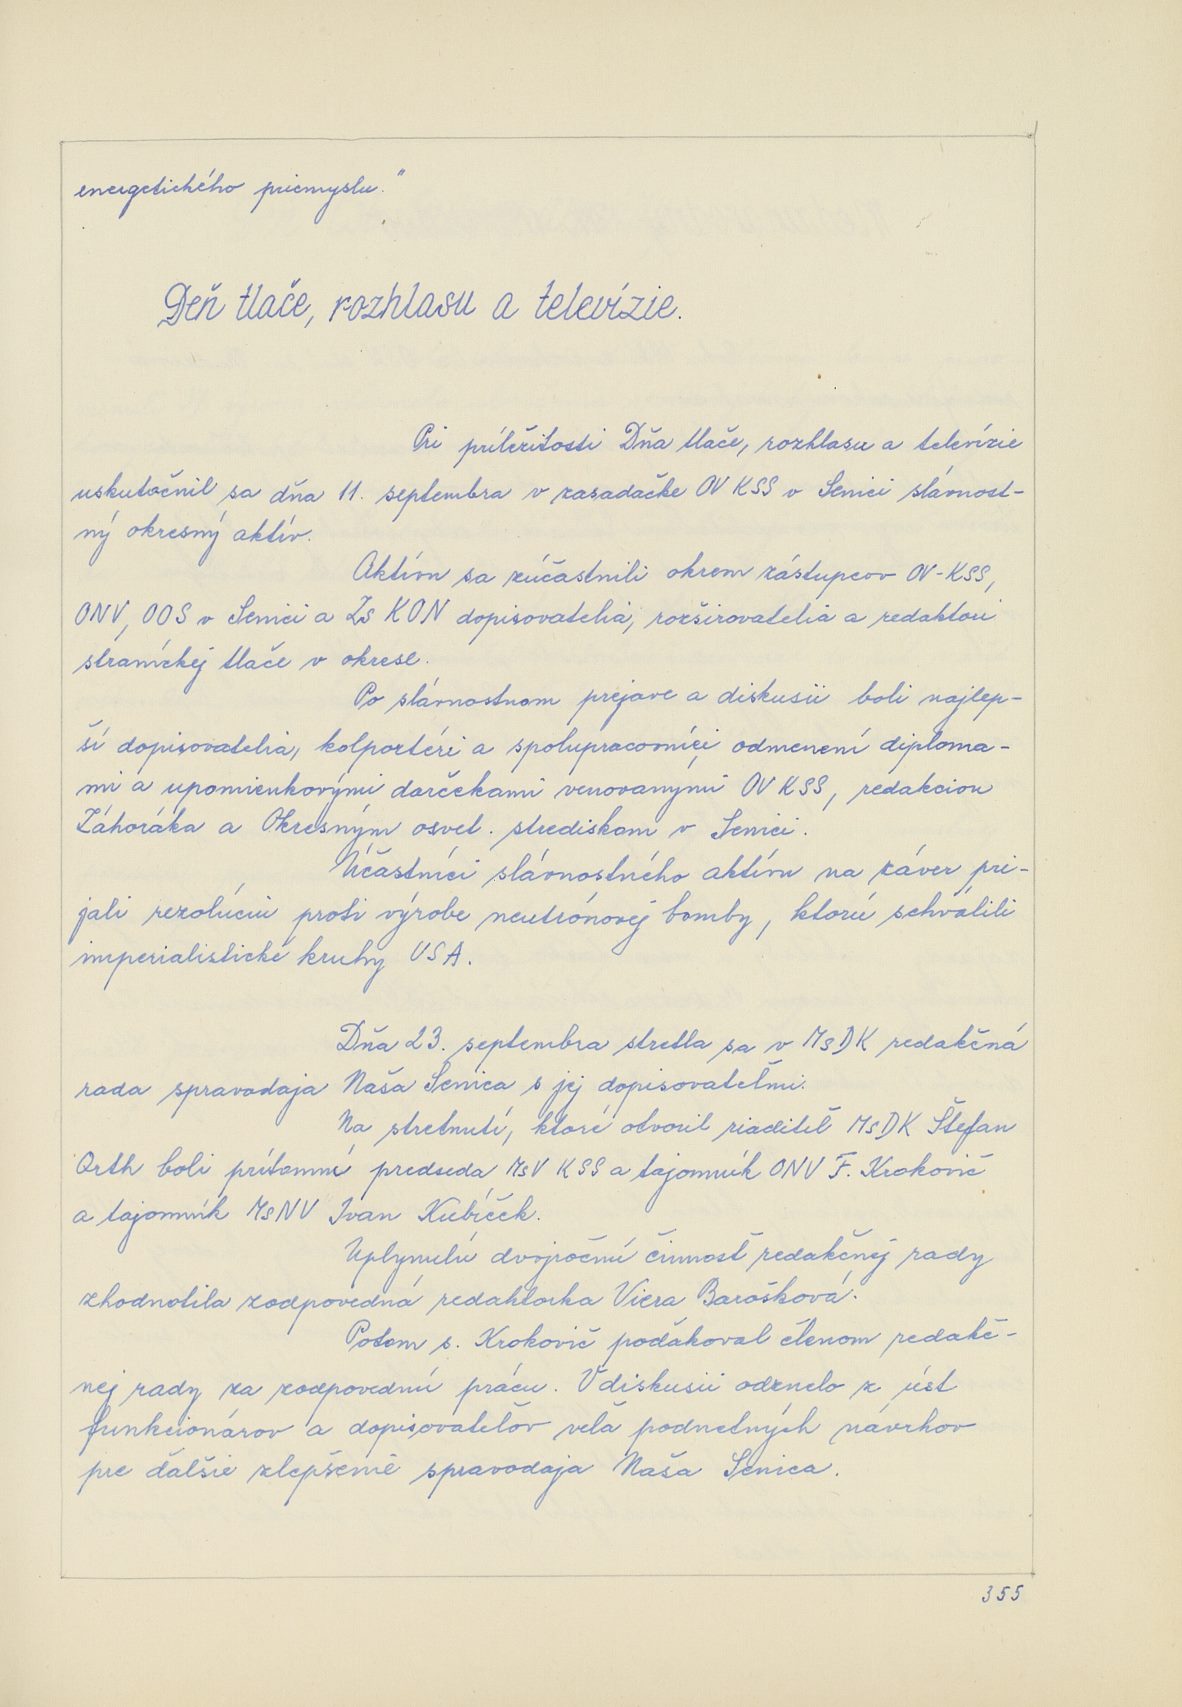 energetického priemyslu."
Deň tlače, rozhlasu a televízie.
Pri príležitosti Dňa tlače, rozhlasu a televízie
uskutočnil sa dňa 11. septembra v zasadačke OV KSS v Senici slávnost-
ný okresný aktív.
Aktívu sa zúčastnili okrem zástupcov OV-KSS,
ONV, OOS v Senici a Zs KON dopisovatelia, rozširovatelia a redaktori
straníckej tlače v okrese.
Po slávnostnom prejave a diskusii boli najlep-
ší dopisovatelia, kolportéri a spolupracovníci odmenení diploma-
mi a upomienkovými darčekami venovanými OV KSS, redakciou
Záhoráka a Okresným osvet. strediskom v Senici.
Účastníci slávnostného aktívu na záver pri-
jali rezolúciu proti výrobe neutrónovej bomby, ktorú schválili
imperialistické kruhy USA.
Dňa 23. septembra stretla sa v MsDK redakčná
rada spravodaja Naša Senica s jej dopisovateľmi.
Na stretnutí, ktoré otvoril riaditeľ MsDK Štefan
Orth boli prítomní predseda MsV KSS a tajomník ONV F. Krokovič
a tajomník MsNV Ivan Kubíček.
Uplynulú dvojročnú činnosť redakčnej rady
zhodnotila zodpovedná redaktorka Viera Barošková.
Potom s. Krokovič poďakoval členom redakč-
nej rady za zodpovednú prácu. V diskusii odznelo z úst
funkcionárov a dopisovateľov veľa podnetných návrhov
pre ďalšie zlepšenie spravodaja Naša Senica.
355